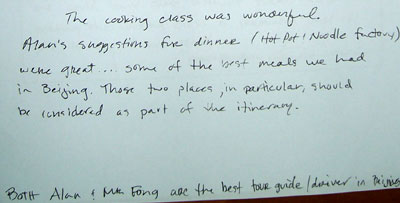 The cooking class was wonderful.
Alan's suggestions for dinner (Hot Pot & Noodle factory)
were great.... some of the best meals we had
in Beijing. Those two places, in particular, should
be considered as part of the itinerary.
BOTH Alan & Mr Fong are the best tour guide/driver in Beijing